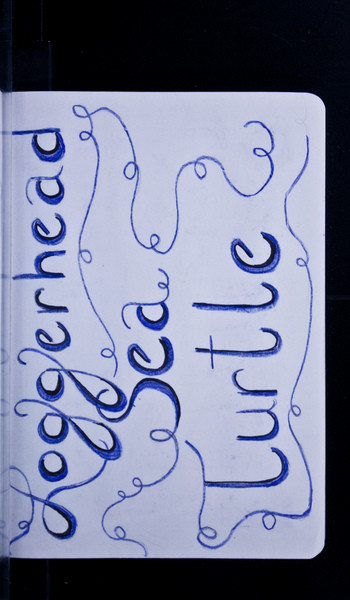 Loggerhead
Sea
Turtle